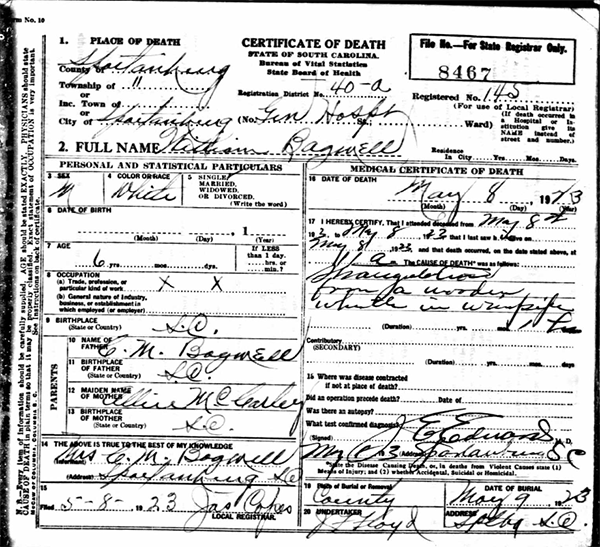 Form No. 10
1. PLACE OF DEATH
CERTIFICATE OF DEATH
STATE OF SOUTH CAROLINA.
Bureau of Vital Statistics
State Board of Health
File No.—For State Registrar Only.
8467
County of Spartanburg
Township of "
or
Inc. Town of
or
City of Spartanburg (No. Gen Hospt St. Ward)
Registration District No. 40-a Registered No. 145
(For use of Local Registrar)
(If death occurred in a Hospital or Institution give its NAME instead of street and number.)
2. FULL NAME William Bagwell
Residence In City Yrs. Mos. Days
PERSONAL AND STATISTICAL PARTICULARS
3 SEX M
4 COLOR OR RACE White
5 SINGLE, MARRIED, WIDOWED, OR DIVORCED. (Write the word)
6 DATE OF BIRTH
(Month) (Day) , 1 (Year)
7 AGE
6 yrs. mos. ds.
If LESS than 1 day. hrs. or min.
8 OCCUPATION
(a) Trade, profession, or particular kind of work X X
(b) General nature of industry, business, or establishment in which employed (or employer)
9 BIRTHPLACE
(State or Country) S.C.
PARENTS
10 NAME OF FATHER C. M. Bagwell
11 BIRTHPLACE OF FATHER
(State or Country) S.C.
12 MAIDEN NAME OF MOTHER
13 BIRTHPLACE OF MOTHER
(State or Country) S.C.
14 THE ABOVE IS TRUE TO THE BEST OF MY KNOWLEDGE
(Informant) Mrs C. M. Bagwell
(Address) Spartanburg SC
15
Filed 5-8-1923 Jas Copes
LOCAL REGISTRAR.
MEDICAL CERTIFICATE OF DEATH
16 DATE OF DEATH
May 8 , 1923
(Month) (Day) (Year)
17 I HEREBY CERTIFY, That I attended deceased from May 8th
May 8 23 that I last saw h alive on
May 8 1923 and that death occurred, on the date stated above, at
The CAUSE OF DEATH was as follows:
Strangulation
from a wooden
whistle in windpipe
(Duration) yrs. mos.
Contributory
(SECONDARY)
(Duration) yrs. mos. ds.
18 Where was disease contracted
if not at place of death?
Did an operation precede death? Date of
Was there an autopsy?
What test confirmed diagnosis?
(Signed) M. D.
State the Disease Causing Death, or, in deaths from Violent Causes state (1) Means of Injury; and (2) whether Accidental, Suicidal or Homicidal.
19 Place of Burial or Removal County
DATE OF BURIAL May 9 1923
20 UNDERTAKER J F Floyd
ADDRESS Sptbg S.C.